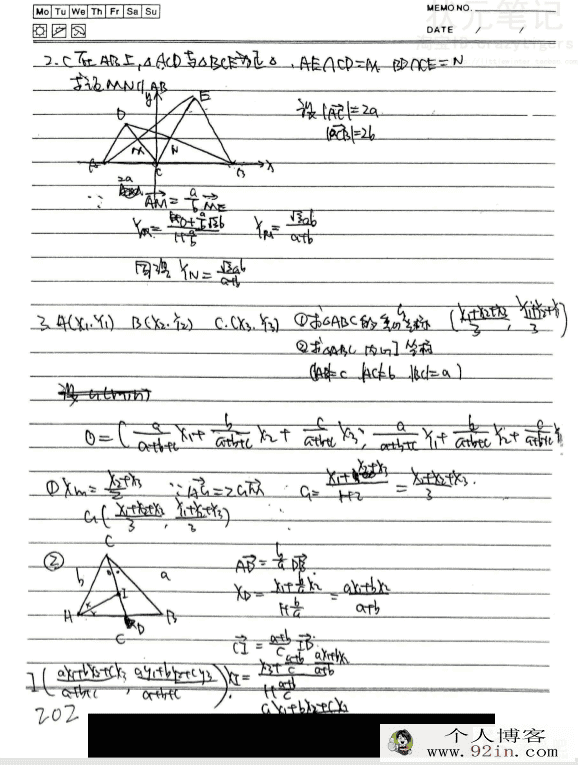 Mo Tu We Th Fr Sa Su
MEMO NO.
DATE / /
状元笔记
2. C在AB上, △ACD与△BCE为正△. AE∩CD=M BD∩CE=N
求证MN∥AB
设|AC|=2a
|CB|=2b
y E
D
M N
A C B x
2a
∵ AM = a/b ME
Y_M = (0+a/b √3b)/(1+a/b) Y_M = √3ab/(a+b)
同理 Y_N = √3ab/(a+b)
3. A(X1,Y1) B(X2,Y2) C(X3,Y3) ①求△ABC的重心G坐标 ((X1+X2+X3)/3, (Y1+Y2+Y3)/3)
②求△ABC 内心I坐标
(|AB|=c |AC|=b |BC|=a)
0=( a/(a+b+c) X1 + b/(a+b+c) X2 + c/(a+b+c) X3, a/(a+b+c) Y1 + b/(a+b+c) Y2 + c/(a+b+c) Y
① Xm = (X2+X3)/2 ∵ AG=2GM G= = (X1+X2+X3)/3
G( (X1+X2+X3)/3, (Y1+Y2+Y3)/3 )
②
C
b a
I
A D B
C
AD = b/a DB
X_D = (X1+b/a X2)/(1+b/a) = (aX1+bX2)/(a+b)
CI = (a+b)/c ID
I( (aX1+bX2+cX3)/(a+b+c), (aY1+bY2+cY3)/(a+b+c) ) X_I = (X3+(a+b)/c (aX1+bX2)/(a+b))/(1+(a+b)/c)
aX1+bX2+cX3
202
个人博客
www.92in.com